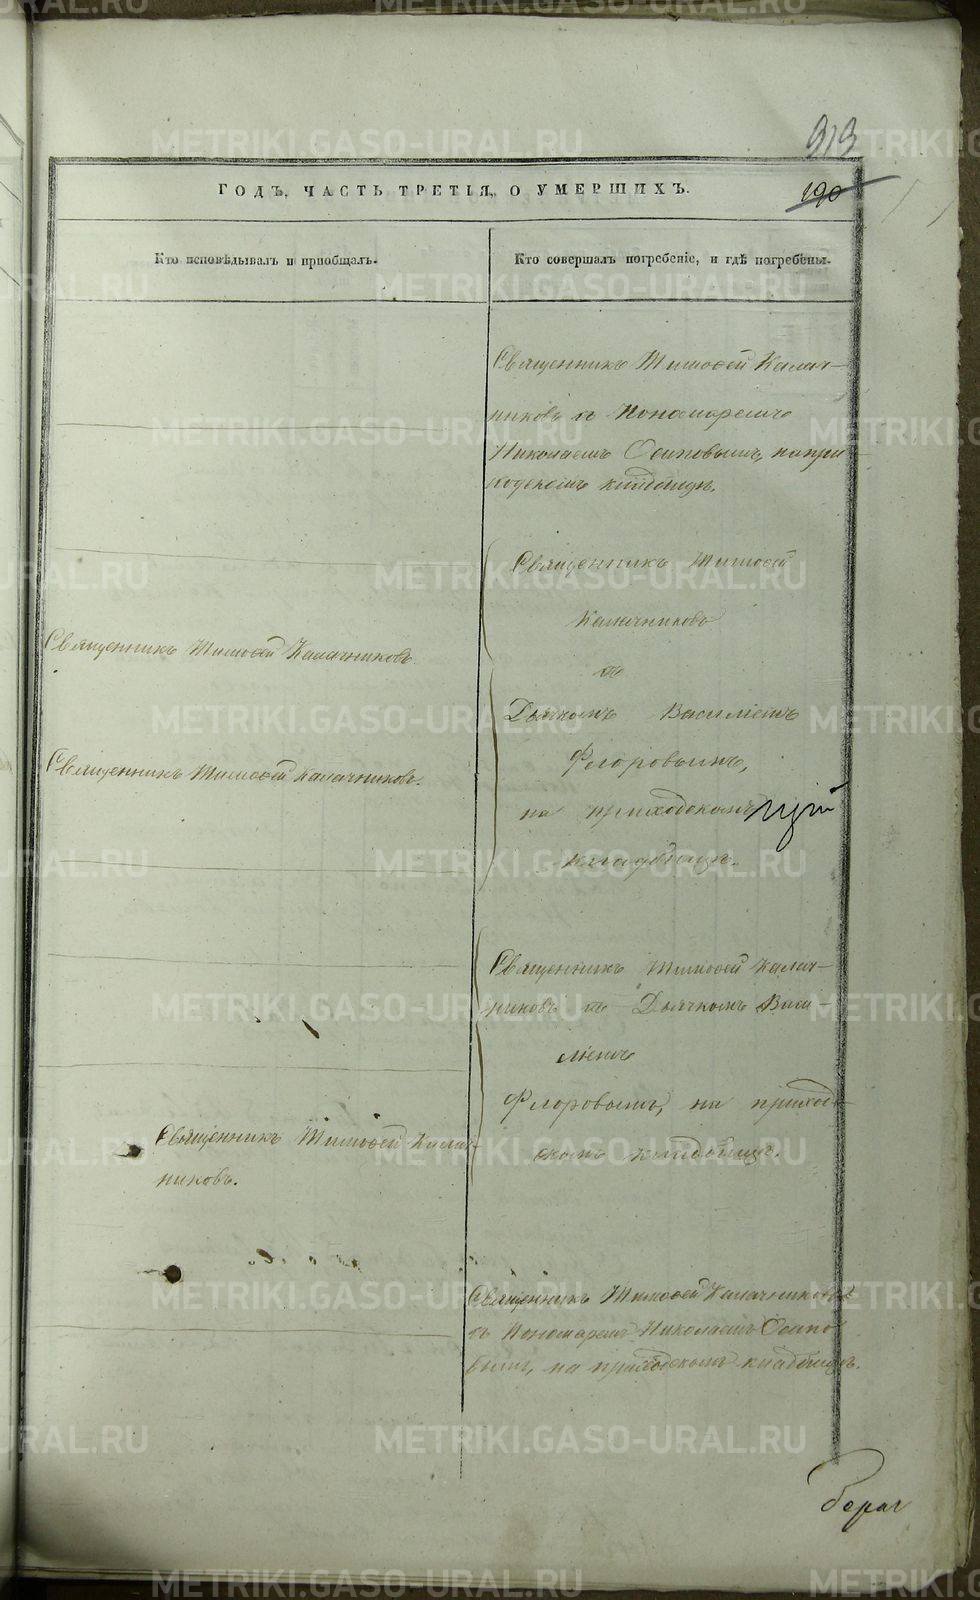 313
190
ГОДЪ, ЧАСТЬ ТРЕТІЯ, О УМЕРШИХЪ.
Кто исповѣдывалъ и пріобщалъ.
Кто совершалъ погребеніе, и гдѣ погребены.
Священникъ Тимоѳей Калач-
никовъ съ Пономаремъ
Николаемъ Осиповымъ, на при-
ходскомъ кладбищѣ.
Священникъ Тимоѳей
Калачниковъ
съ
Дьячкомъ Василіемъ
Флоровымъ,
на приходскомъ
кладбищѣ.
Священникъ Тимоѳей Калачниковъ.
Священникъ Тимоѳей Калачниковъ.
Священникъ Тимоѳей Калач-
никовъ съ Дьячкомъ Васи-
ліемъ
Флоровымъ, на приход-
скомъ кладбищѣ.
Священникъ Тимоѳей Калач-
никовъ.
Священникъ Тимоѳей Калачниковъ
съ Пономаремъ Николаемъ Осипо-
вымъ, на приходскомъ кладбищѣ.
METRIKI.GASO-URAL.RU